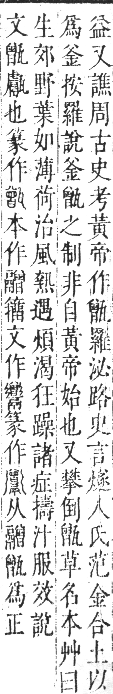 益又譙周古史考黃帝作甑羅泌路史言燧人氏范金合土以
爲釜按羅說釜甑之制非自黃帝始也又攀倒甑草名本艸曰
生郊野葉如薄荷治風熱遇煩渴狂躁諸症擣汁服效說
文甑甗也篆作甑本作䰝籀文作篆作从䰝甑爲正